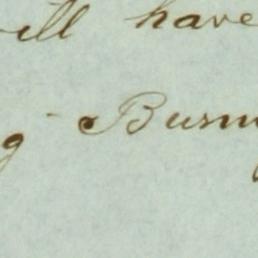 will have
g Busin